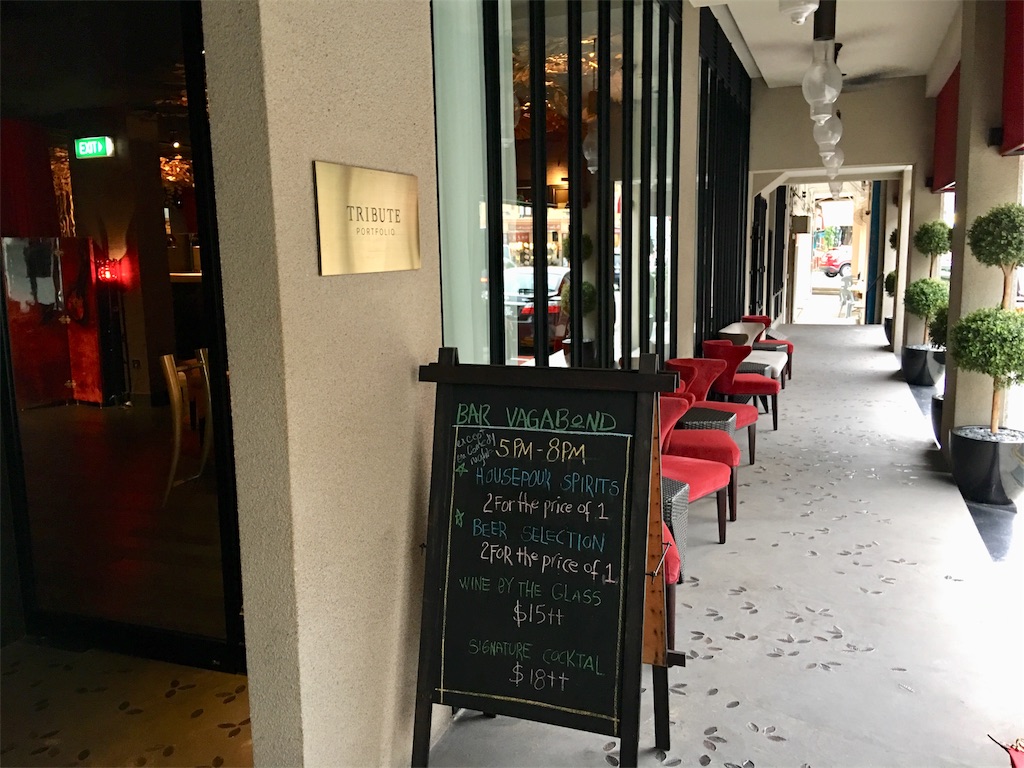 EXIT
TRIBUTE
PORTFOLIO
BAR VAGABOND
5PM-8PM
HOUSEPOUR SPIRITS
2 For the price of 1
BEER SELECTION
2 FOR the price of 1
WINE BY THE GLASS
$15++
SIGNATURE COCKTAL
$18++